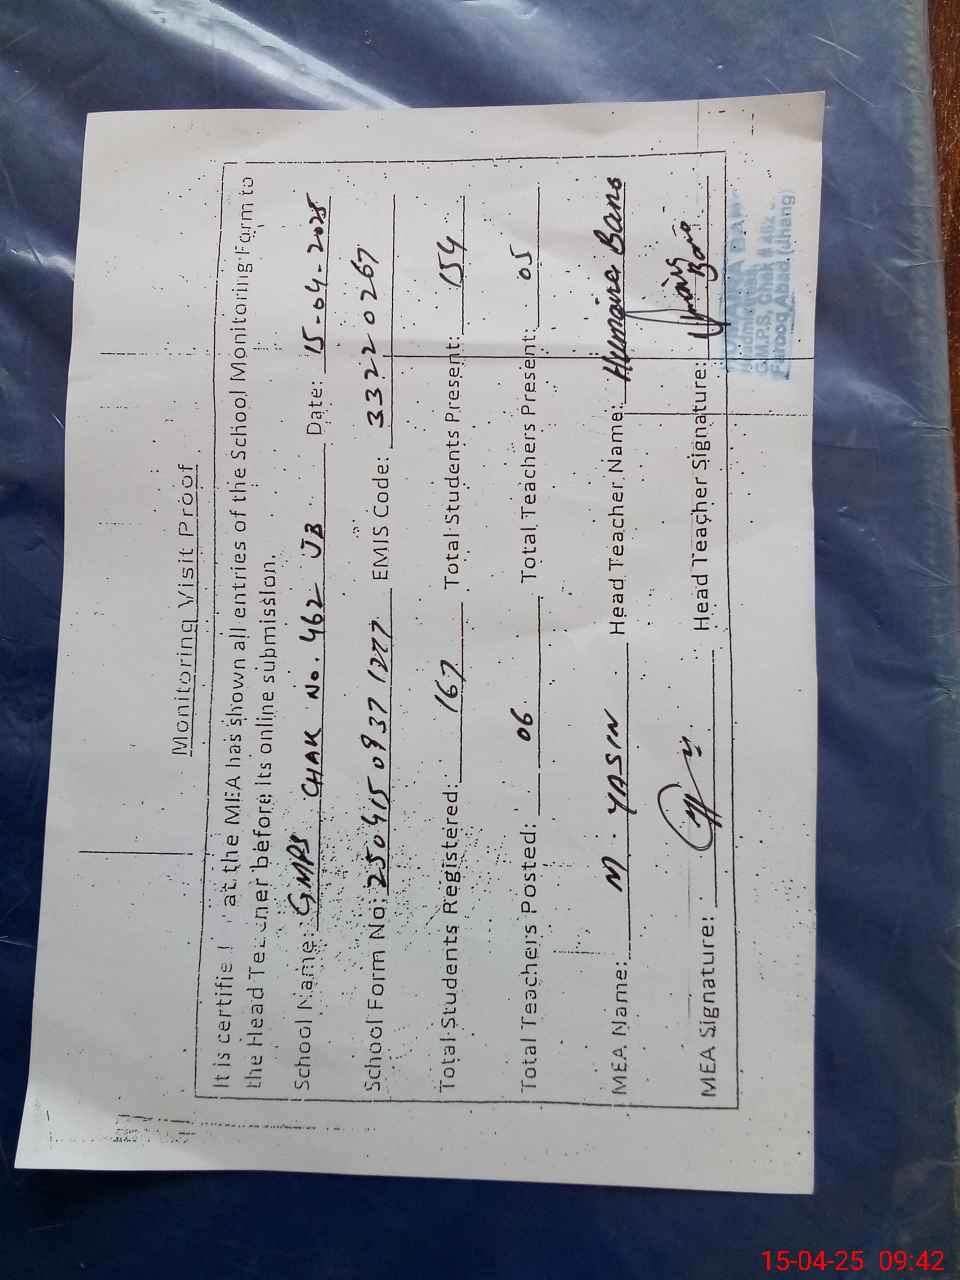 Monitoring Visit Proof
It is certifie at the MEA has shown all entries of the School Monitoring Form to
the Head Teacher before its online submission.
School Name: GMPS CHAK No. 462 JB Date: 15-04-2025
School Form No: 25041509371277 EMIS Code: 33220267
Total Students Registered: 167 Total Students Present: 154
Total Teachers Posted: 06 Total Teachers Present: 05
MEA Name: M. YASIN Head Teacher Name: Humaira Bano
MEA Signature: Head Teacher Signature: Bano
G.M.P.S, Chak # 462
Farooq Abad (Jhang)
15-04-25 09:42